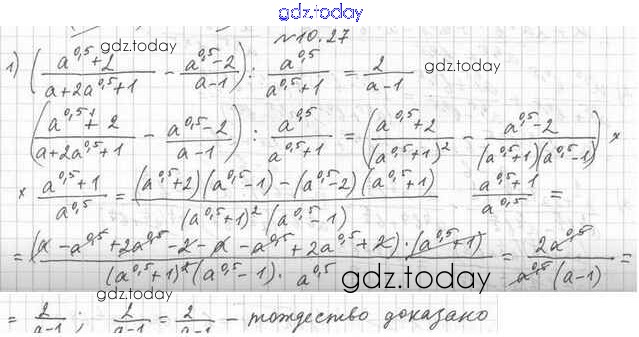 gdz.today
№10.27
gdz.today
1) (a^0,5+2 / a+2a^0,5+1 − a^0,5−2 / a−1) : a^0,5 / a^0,5+1 = 2 / a−1 gdz.today
(a^0,5+2 / a+2a^0,5+1 − a^0,5−2 / a−1) : a^0,5 / a^0,5+1 = (a^0,5+2 / (a^0,5+1)^2 − a^0,5−2 / (a^0,5+1)(a^0,5−1)) ×
× a^0,5+1 / a^0,5 = (a^0,5+2)(a^0,5−1)−(a^0,5−2)(a^0,5+1) / (a^0,5+1)^2(a^0,5−1) a^0,5+1 / a^0,5 =
= (a−a^0,5+2a^0,5−2−a−a^0,5+2a^0,5+2)·(a^0,5+1) / (a^0,5+1)^2(a^0,5−1)·a^0,5 = 2a^0,5 / a^0,5(a−1) =
gdz.today gdz.today
= 2 / a−1 ; 2 / a−1 = 2 / a−1 – тождество доказано